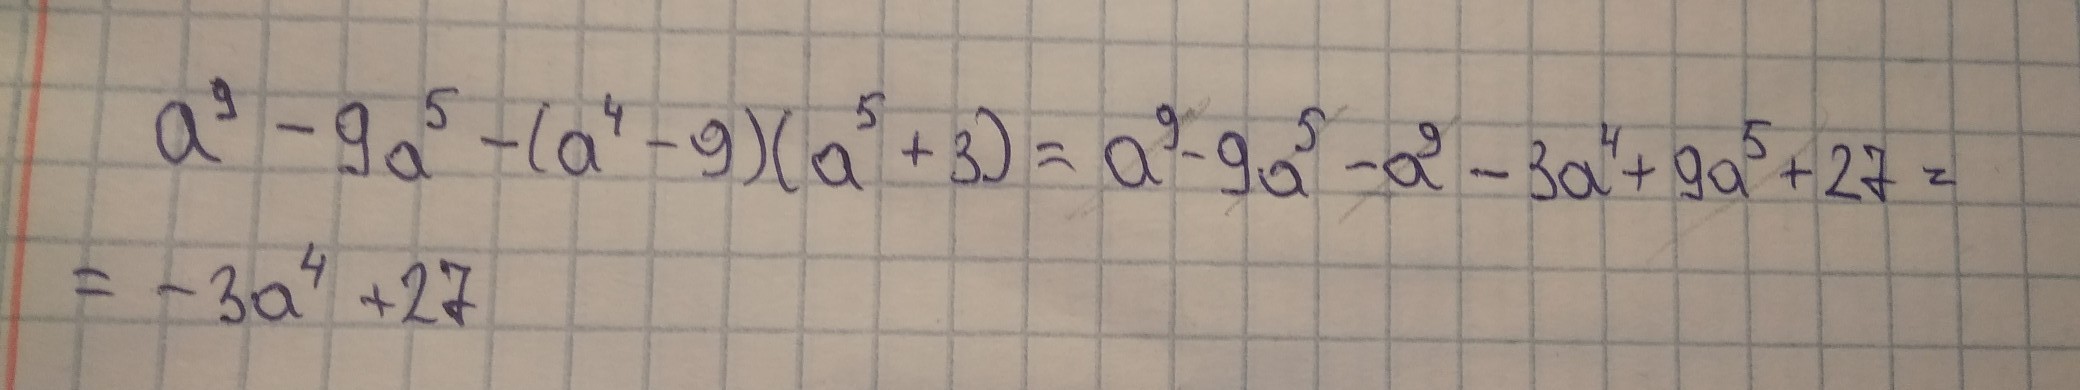 a⁹ - 9a⁵ - (a⁴ - 9)(a⁵ + 3) = a⁹ - 9a⁵ - a⁹ - 3a⁴ + 9a⁵ + 27 =
= - 3a⁴ + 27